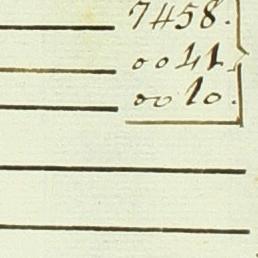 7458.
0041.
0010.